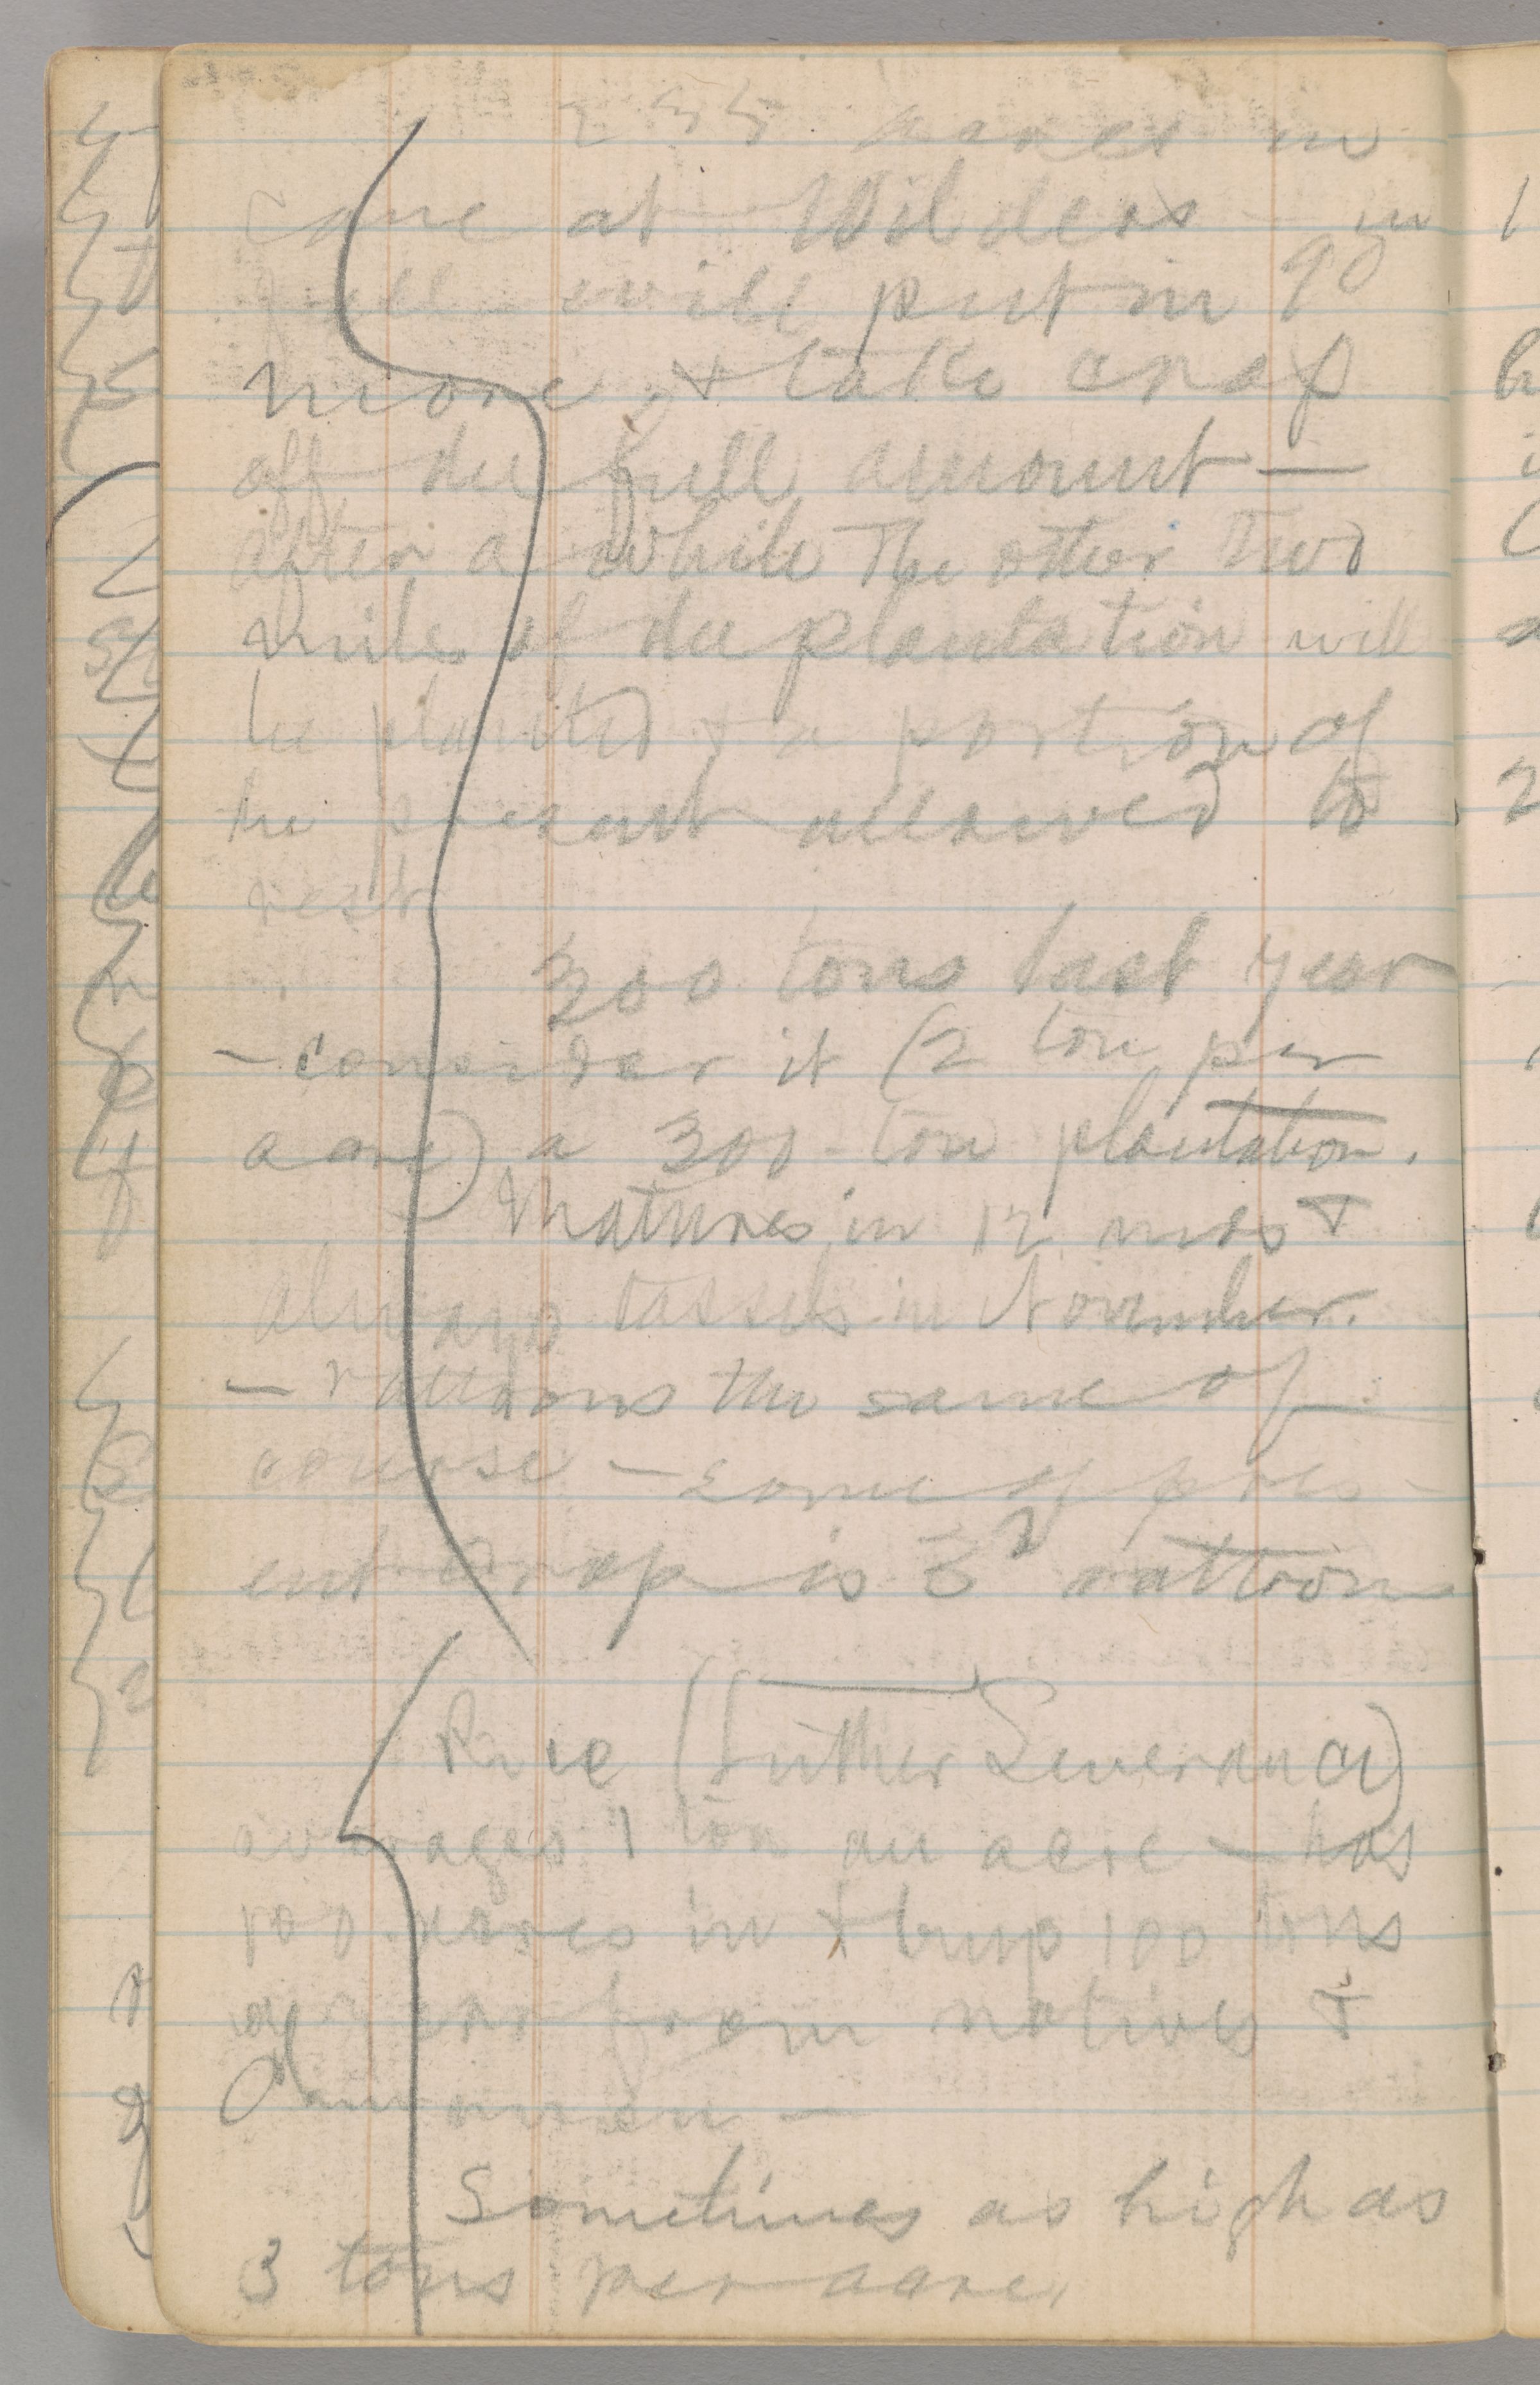 235 acres in
cane at Wilders — in
full will put in 90
more, & take crop
off the full amount —
after a while the other two
miles of the plantation will
be planted & a portion of
the present allowed to
rest
300 tons last year
— consider it (2 ton per
acre) a 300-ton plantation.
Matures in 12 mos &
always tassels in November.
— rattoons the same of
course — some of pres-
ent crop is 3d rattoon
Rice (Luther Severance)
averages 1 ton an acre — has
100 acres in & buys 100 tons
a year from natives &
Chinamen —
Sometimes as high as
3 tons per acre.